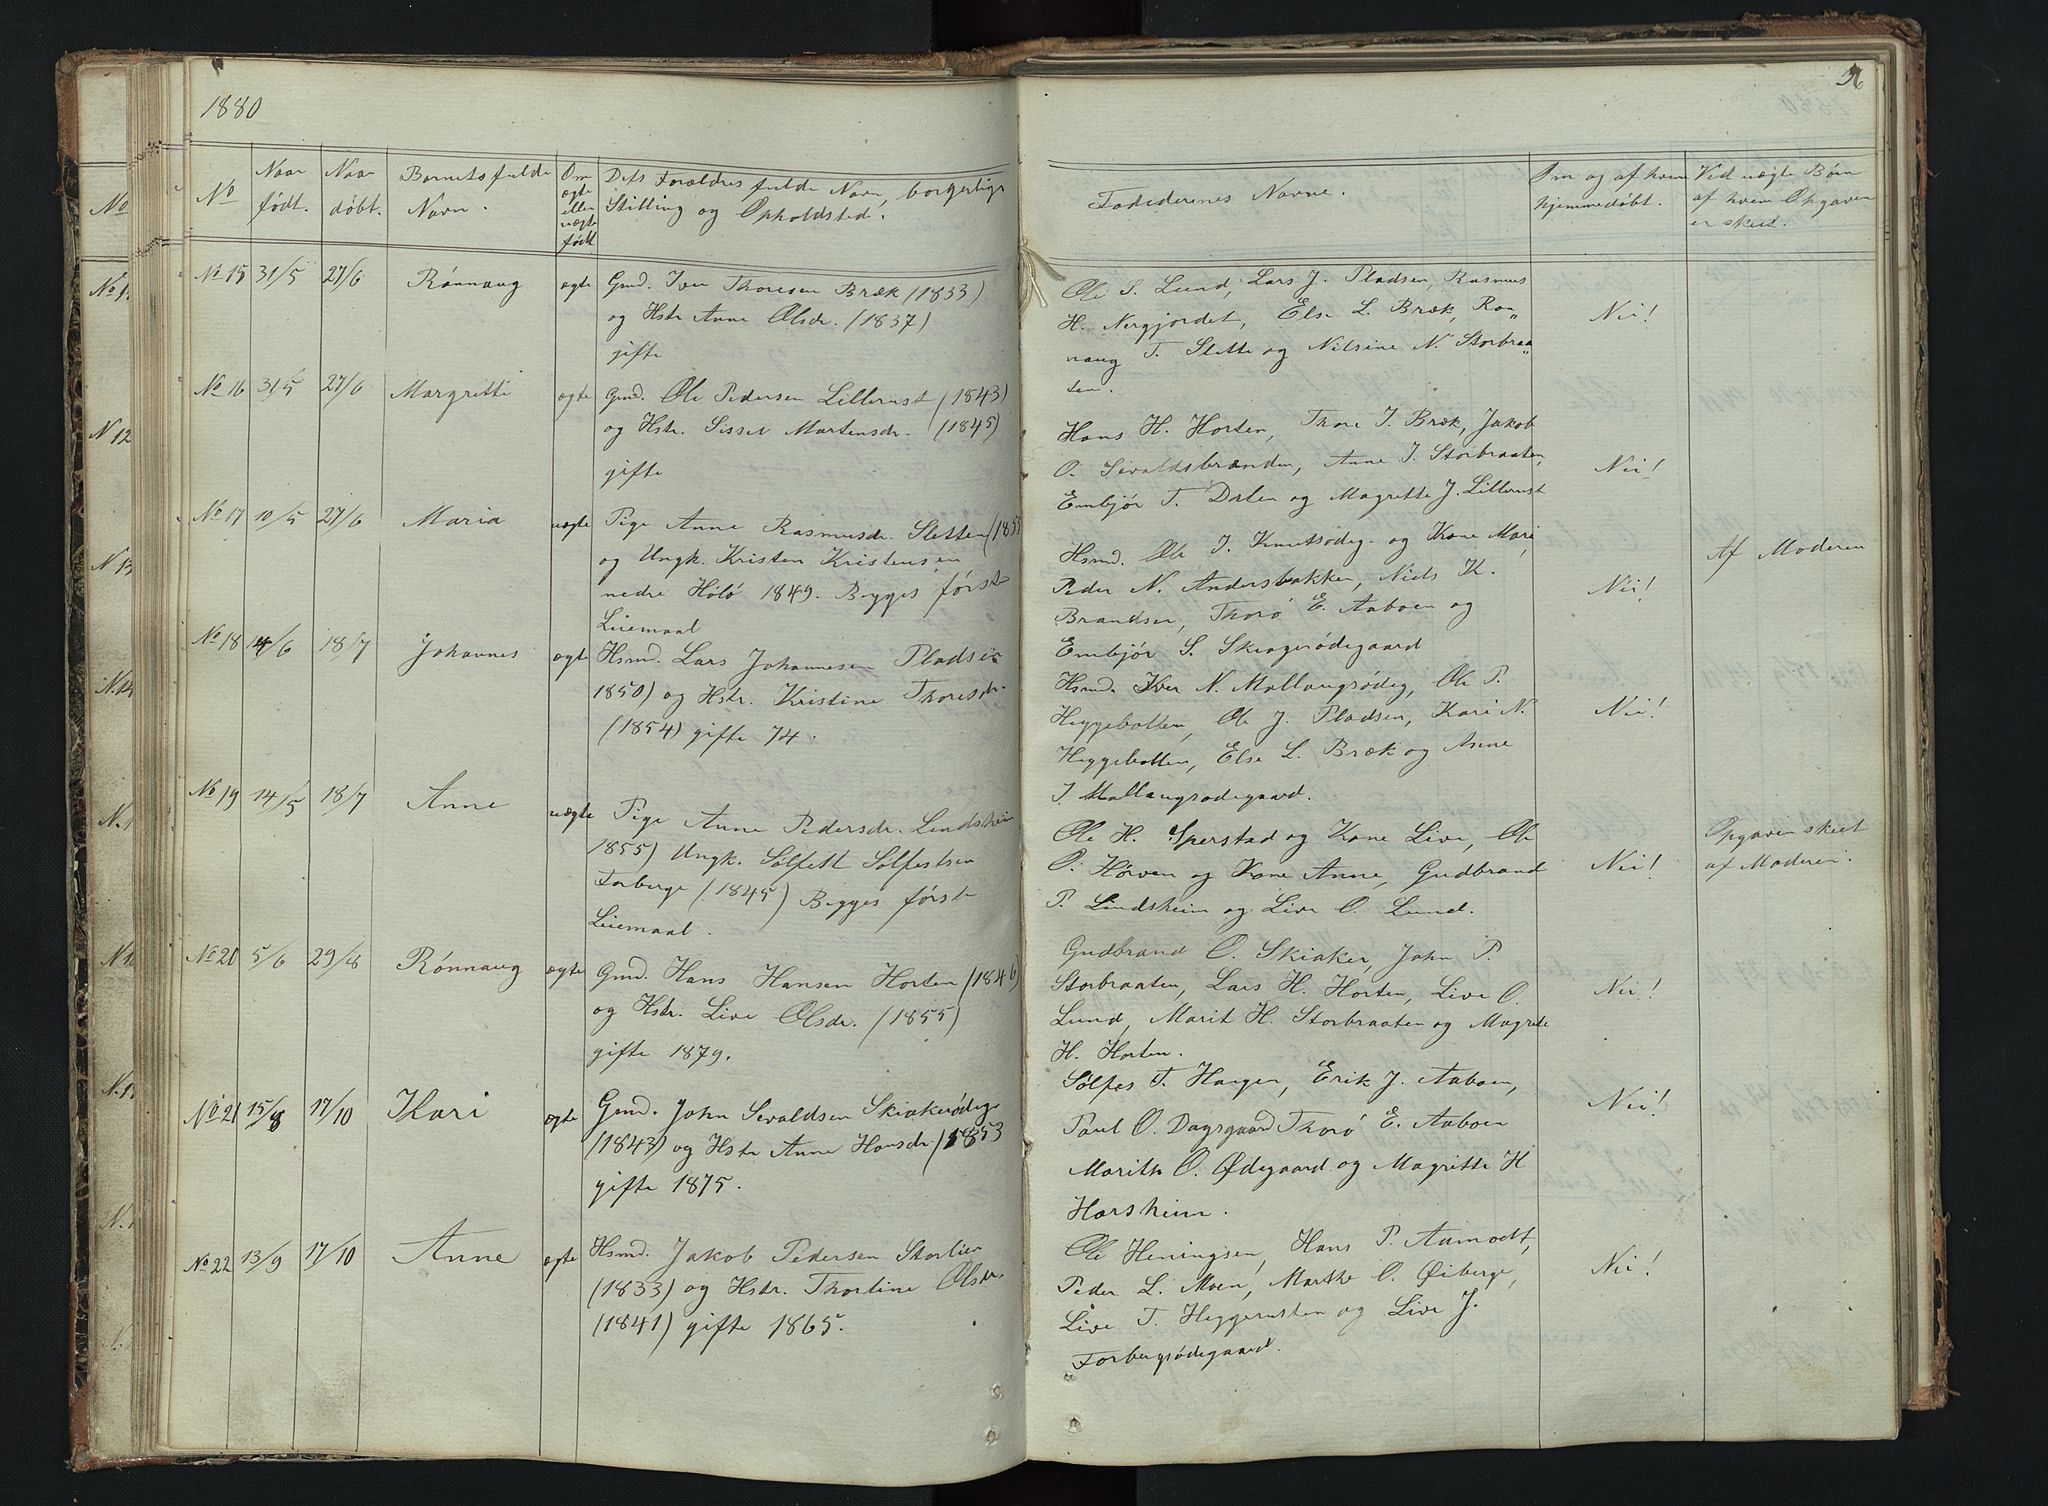 1880
No
Naar født.
Naar døbt.
Barnets fulde Navn.
Om ægte eller uægte født
Dets Forældres fulde Navn, borgerlige
Stilling og Opholdsted.
No 15 31/5 27/6 Rønnaug ægte Gmd. Iver Thoresen Bræk (1833)
og Hstr Anne Olsdr. (1837)
gifte
No 16 31/5 27/6 Margrethe ægte Gmd. Ole Pedersen Lillerust (1843)
og Hstr. Sissel Martensdr. (1845)
gifte
No 17 10/5 27/6 Maria uægte Pige Anne Rasmusdr. Sletten (1853
og Ungk. Kristen Kristensen
nedre Hølø 1849. Begges første
Leiemaal
No 18 14/6 18/7 Johannes ægte Hsmd. Lars Johannesen Pladsen
1850) og Hstr. Kristine Thoresdr.
(1854) gifte 74.
No 19 14/5 18/7 Anne uægte Pige Anne Pedersdr. Lindsheim
1855) Ungk. Sølfest Sølfestsen
Forberge (1845) Begges første
Leiemaal.
No 20 5/6 29/8 Rønnaug ægte Gmd. Hans Hansen Horten (1846)
og Hstr. Live Olsdr. (1855)
gifte 1879.
No 21 15/8 17/10 Kari ægte Gmd. John Sevaldsen Skiakerødeg.
(1843) og Hstr Anne Hansdr. (1853
gifte 1875.
No 22 13/9 17/10 Anne ægte Hsmd. Jakob Pedersen Storlien
(1833) og Hstr. Thorline Olsdr.
(1841) gifte 1865.
No
No 1
N 12
N 13
N. 14
N. 1
N. 1
N. 1
N. 1
N. 1
36
Fadderenes Navne.
Om og af hvem
hjemmedøbt.
Ved uægte Børn
af hvem Opgaven
er skeet.
Ole S. Lund, Lars J. Pladsen, Rasmus
H. Nergjordet, Else L. Bræk, Røn„
naug T. Slette og Nilsine N. Storbraa„
ten.
Nei!
Hans H. Horten, Thore I. Bræk, Jakob
O. Sevaldsbrænden, Anne J. Storbraaten,
Embjør T. Dalen og Magrethe J. Lillerust
Nei!
Hsmd. Ole J. Knutsødeg. og Kone Mari
Peder N. Andersbakken, Niels K.
Brandsen, Thorø E. Aaboen og
Embjør S. Skiagerødegaard
Nei!
Af Moderen
Hsmd. Iver N. Mallangsødeg, Ole P.
Heggebotten, Ole J. Pladsen, Kari N.
Heggebotten, Else L. Bræk og Anne
I. Mallangsødegaard.
Nei!
Ole H. Sperstad og Kone Live, Ole
O. Hørven og Kone Anne, Gudbrand
P. Lindsheim og Live O. Lund.
Nei!
Opgaven skeet
af Moderen.
Gudbrand O. Skiaker, John P.
Storbraaten, Lars H. Horten, Live O.
Lund, Marit H. Storbraaten og Magrete
H. Horten.
Nei!
Sølfes T. Haugen, Erik J. Aaboen,
Paul O. Dagsgaard Thorø E. Aaboen
Marith O. Ødegaard og Magritte H.
Harsheim.
Nei!
Ole Heningsen, Hans P. Aamodt,
Peder L. Moen, Marthe O. Øiberge,
Live T. Heggerusten og Live J.
Forbergsødegaard.
Nei!